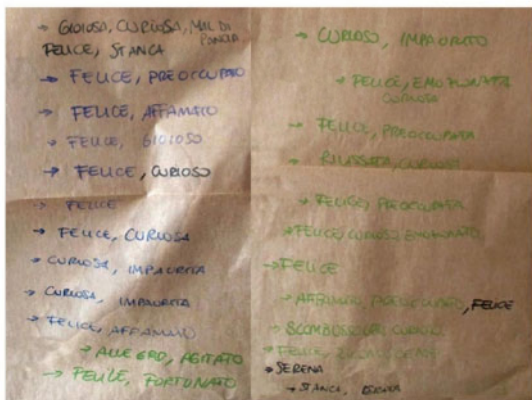 → GIOIOSA, CURIOSA, MAL DI PANCIA
FELICE, STANCA
→ FELICE, PREOCCUPATO
→ FELICE, AFFAMATO
→ FELICE, GIOIOSO
→ FELICE, CURIOSO
→ FELICE
→ FELICE, CURIOSA
→ CURIOSA, IMPAURITA
→ CURIOSA, IMPAURITA
→ FELICE, AFFAMATO
→ ALLEGRO, AGITATO
→ FELICE, FORTUNATO
→ CURIOSO, IMPAURITO
→ FELICE, EMOZIONATA
CURIOSA
→ FELICE, PREOCCUPATA
→ RILASSATA, CURIOSA
→ FELICE, PREOCCUPATA
→ FELICE, CURIOSO, EMOZIONATO
→ FELICE
→ AFFAMATO, PREOCCUPATO, FELICE
→ CURIOSO
→ FELICE,
→ SERENA
→ STANCA, SERENA